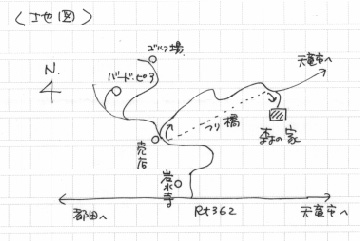 (地図)
ゴハン場
天竜市へ
N.
バード・ピア
つり橋
森の家
売店
岩水寺
都田へ
Rt362
天竜市へ